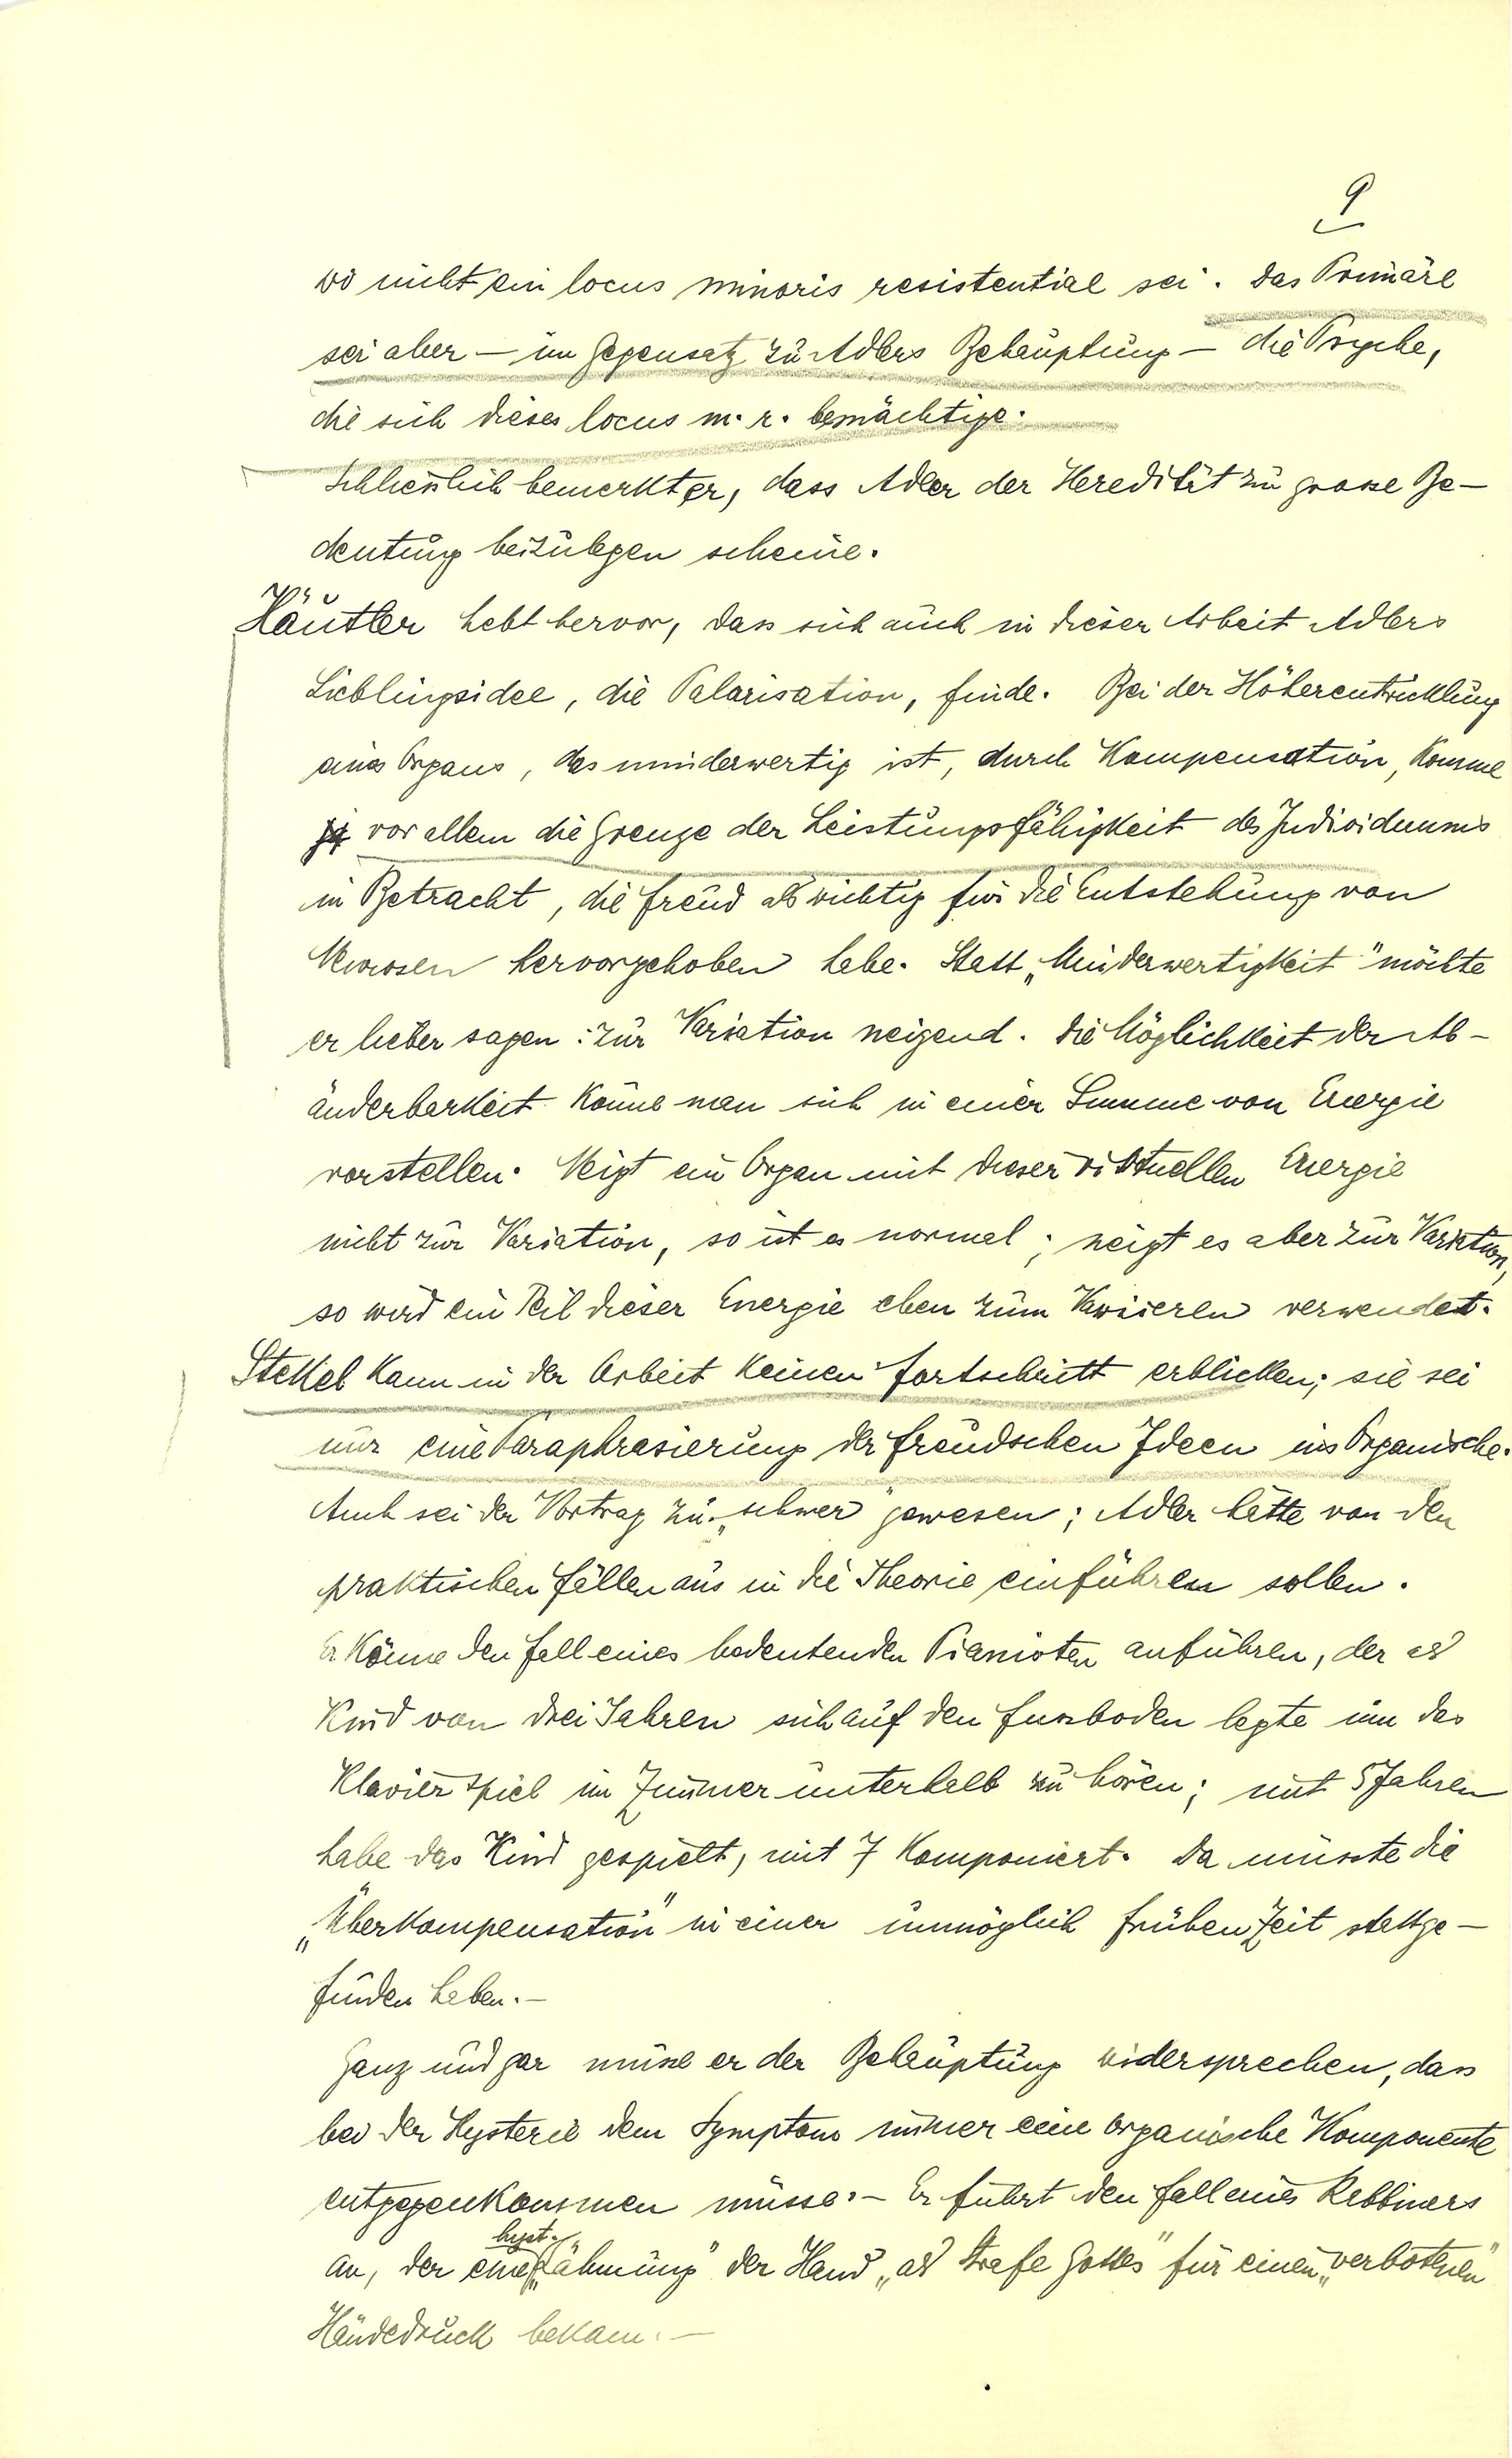 9
wo nicht ein locus minoris resistentiae sei. Das Primäre
sei aber — im Gegensatz zu Adlers Behauptung — die Psyche,
die sich dieses locus m. r. bemächtige.
Schliesslich bemerkt er, dass Adler der Heredität zu grosse Be-
deutung beizulegen scheine.
Häutler hebt hervor, dass sich auch in dieser Arbeit Adlers
Lieblingsidee, die Polarisation, finde. Bei der Höherentwicklung
eines Organs, das minderwertig ist, durch Kompensation, komme
ja vor allem die Grenze der Leistungsfähigkeit des Individuums
in Betracht, die Freud als wichtig für die Entstehung von
Neurosen hervorgehoben habe. Statt „Minderwertigkeit" möchte
er lieber sagen: zur Variation neigend. Die Möglichkeit der Ab-
änderbarkeit könne man sich in einer Summe von Energie
vorstellen. Neigt ein Organ mit dieser virtuellen Energie
nicht zur Variation, so ist es normal; neigt es aber zur Variation,
so wird ein Teil dieser Energie eben zum Variieren verwendet.
Stekel kann in der Arbeit keinen Fortschritt erblicken; sie sei
nur eine Paraphrasierung der Freudschen Ideen ins Organische.
Auch sei der Vortrag zu „schwer" gewesen; Adler hätte von den
praktischen Fällen aus in die Theorie einführen sollen.
Er könne den Fall eines bedeutenden Pianisten anführen, der als
Kind von drei Jahren sich auf den Fussboden legte um das
Klavierspiel im Zimmer unterhalb zu hören; mit 5 Jahren
habe das Kind gespielt, mit 7 komponiert. Da müsste die
„Überkompensation" in einer unmöglich frühen Zeit stattge-
funden haben.—
Ganz und gar müsse er der Behauptung widersprechen, dass
bei der Hysterie dem Symptom immer eine organische Komponente
entgegenkommen müsse.— Er führt den Fall eines Rabbiners
an, der eine hyst. „Lähmung" der Hand „als Strafe Gottes" für einen „verbotenen"
Händedruck bekam.—